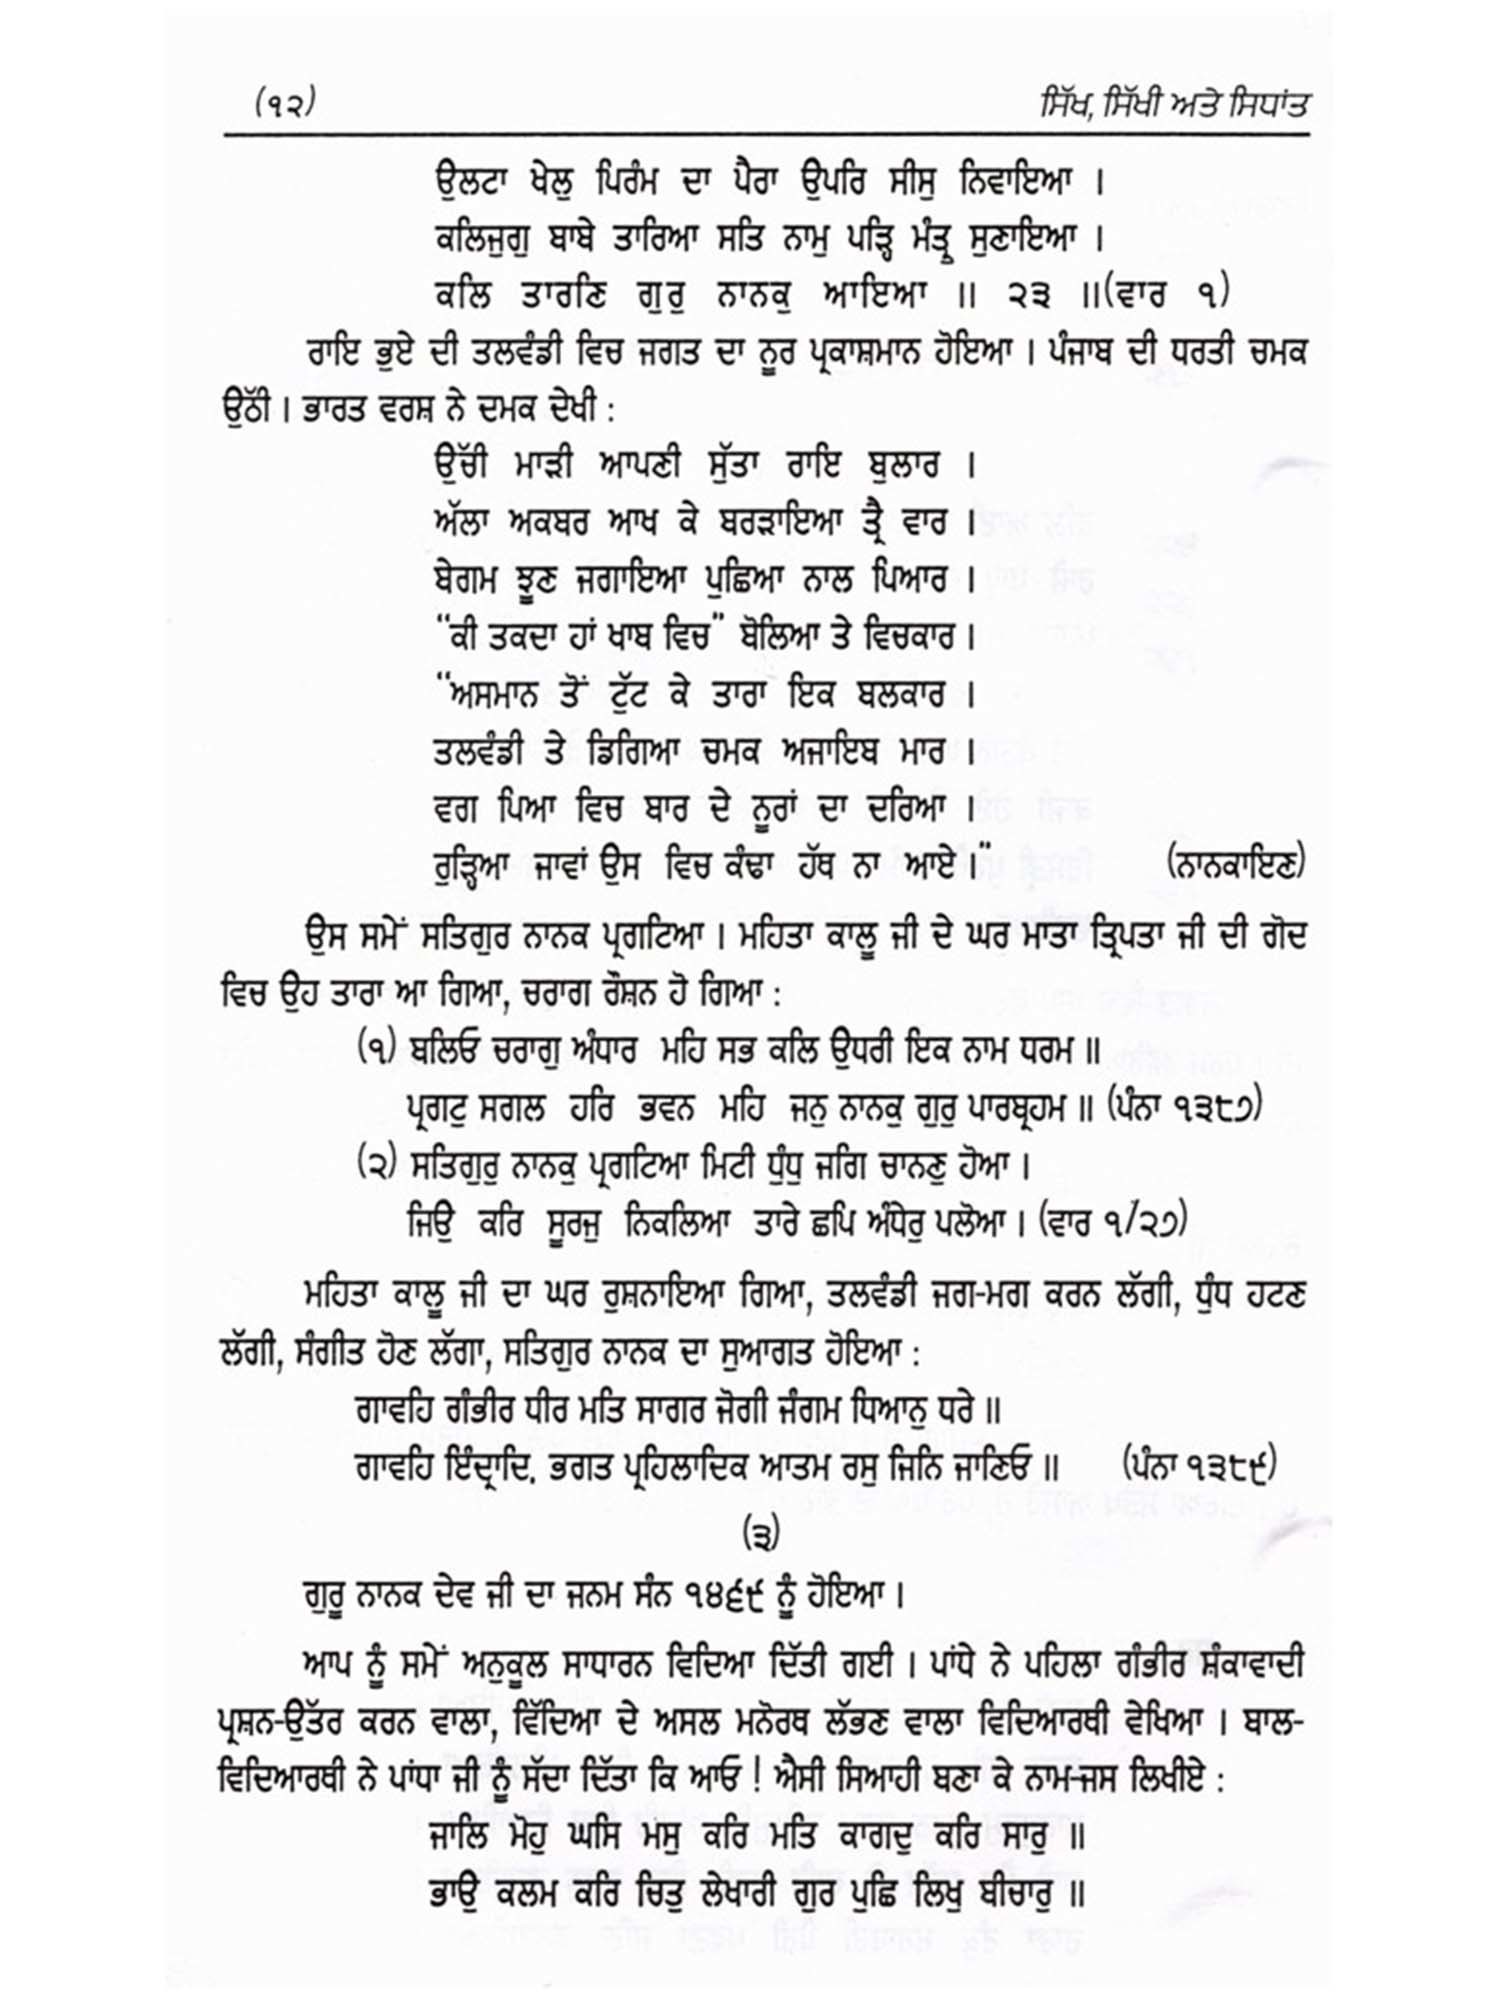 (੧੨) ਸਿੱਖ, ਸਿੱਖੀ ਅਤੇ ਸਿਧਾਂਤ
ਉਲਟਾ ਖੇਲੁ ਪਿਰੰਮ ਦਾ ਪੈਰਾ ਉਪਰਿ ਸੀਸੁ ਨਿਵਾਇਆ ।
ਕਲਿਜੁਗੁ ਬਾਬੇ ਤਾਰਿਆ ਸਤਿ ਨਾਮੁ ਪੜ੍ਹਿ ਮੰਤ੍ਰੁ ਸੁਣਾਇਆ ।
ਕਲਿ ਤਾਰਣਿ ਗੁਰੁ ਨਾਨਕੁ ਆਇਆ ॥ ੨੩ ॥(ਵਾਰ ੧)
ਰਾਇ ਭੁਏ ਦੀ ਤਲਵੰਡੀ ਵਿਚ ਜਗਤ ਦਾ ਨੂਰ ਪ੍ਰਕਾਸ਼ਮਾਨ ਹੋਇਆ । ਪੰਜਾਬ ਦੀ ਧਰਤੀ ਚਮਕ
ਉਠੀ । ਭਾਰਤ ਵਰਸ਼ ਨੇ ਦਮਕ ਦੇਖੀ :
ਉਚੀ ਮਾੜੀ ਆਪਣੀ ਸੁੱਤਾ ਰਾਇ ਬੁਲਾਰ ।
ਅੱਲਾ ਅਕਬਰ ਆਖ ਕੇ ਬਰੜਾਇਆ ਤ੍ਰੈ ਵਾਰ ।
ਬੇਗਮ ਝੂਣ ਜਗਾਇਆ ਪੁਛਿਆ ਨਾਲ ਪਿਆਰ ।
“ਕੀ ਤਕਦਾ ਹਾਂ ਖਾਬ ਵਿਚ” ਬੋਲਿਆ ਤੇ ਵਿਚਕਾਰ ।
“ਅਸਮਾਨ ਤੋਂ ਟੁੱਟ ਕੇ ਤਾਰਾ ਇਕ ਬਲਕਾਰ ।
ਤਲਵੰਡੀ ਤੇ ਡਿਗਿਆ ਚਮਕ ਅਜਾਇਬ ਮਾਰ ।
ਵਗ ਪਿਆ ਵਿਚ ਬਾਰ ਦੇ ਨੂਰਾਂ ਦਾ ਦਰਿਆ ।
ਰੁੜ੍ਹਿਆ ਜਾਵਾਂ ਉਸ ਵਿਚ ਕੰਢਾ ਹੱਥ ਨਾ ਆਏ ।” (ਨਾਨਕਾਇਣ)
ਉਸ ਸਮੇਂ ਸਤਿਗੁਰ ਨਾਨਕ ਪ੍ਰਗਟਿਆ । ਮਹਿਤਾ ਕਾਲੂ ਜੀ ਦੇ ਘਰ ਮਾਤਾ ਤ੍ਰਿਪਤਾ ਜੀ ਦੀ ਗੋਦ
ਵਿਚ ਉਹ ਤਾਰਾ ਆ ਗਿਆ, ਚਰਾਗ ਰੌਸ਼ਨ ਹੋ ਗਿਆ :
(੧) ਬਲਿਓ ਚਰਾਗੁ ਅੰਧਾਰ ਮਹਿ ਸਭ ਕਲਿ ਉਧਰੀ ਇਕ ਨਾਮ ਧਰਮ ॥
ਪ੍ਰਗਟੁ ਸਗਲ ਹਰਿ ਭਵਨ ਮਹਿ ਜਨੁ ਨਾਨਕੁ ਗੁਰੁ ਪਾਰਬ੍ਰਹਮ ॥ (ਪੰਨਾ ੧੩੮੭)
(੨) ਸਤਿਗੁਰੁ ਨਾਨਕੁ ਪ੍ਰਗਟਿਆ ਮਿਟੀ ਧੁੰਧੁ ਜਗਿ ਚਾਨਣੁ ਹੋਆ ।
ਜਿਉ ਕਰਿ ਸੂਰਜੁ ਨਿਕਲਿਆ ਤਾਰੇ ਛਪਿ ਅੰਧੇਰੁ ਪਲੋਆ । (ਵਾਰ ੧/੨੭)
ਮਹਿਤਾ ਕਾਲੂ ਜੀ ਦਾ ਘਰ ਰੁਸ਼ਨਾਇਆ ਗਿਆ, ਤਲਵੰਡੀ ਜਗ-ਮਗ ਕਰਨ ਲੱਗੀ, ਧੁੰਧ ਹਟਣ
ਲੱਗੀ, ਸੰਗੀਤ ਹੋਣ ਲੱਗਾ, ਸਤਿਗੁਰ ਨਾਨਕ ਦਾ ਸੁਆਗਤ ਹੋਇਆ :
ਗਾਵਹਿ ਗੰਭੀਰ ਧੀਰ ਮਤਿ ਸਾਗਰ ਜੋਗੀ ਜੰਗਮ ਧਿਆਨੁ ਧਰੇ ॥
ਗਾਵਹਿ ਇੰਦ੍ਰਾਦਿ. ਭਗਤ ਪ੍ਰਹਿਲਾਦਿਕ ਆਤਮ ਰਸੁ ਜਿਨਿ ਜਾਣਿਓ ॥ (ਪੰਨਾ ੧੩੮੯)
(੩)
ਗੁਰੂ ਨਾਨਕ ਦੇਵ ਜੀ ਦਾ ਜਨਮ ਸੰਨ ੧੪੬੯ ਨੂੰ ਹੋਇਆ ।
ਆਪ ਨੂੰ ਸਮੇਂ ਅਨੁਕੂਲ ਸਾਧਾਰਨ ਵਿਦਿਆ ਦਿੱਤੀ ਗਈ । ਪਾਂਧੇ ਨੇ ਪਹਿਲਾ ਗੰਭੀਰ ਸ਼ੰਕਾਵਾਦੀ
ਪ੍ਰਸ਼ਨ-ਉਤੱਰ ਕਰਨ ਵਾਲਾ, ਵਿੱਦਿਆ ਦੇ ਅਸਲ ਮਨੋਰਥ ਲੱਭਣ ਵਾਲਾ ਵਿਦਿਆਰਥੀ ਵੇਖਿਆ । ਬਾਲ-
ਵਿਦਿਆਰਥੀ ਨੇ ਪਾਂਧਾ ਜੀ ਨੂੰ ਸੱਦਾ ਦਿੱਤਾ ਕਿ ਆਓ ! ਐਸੀ ਸਿਆਹੀ ਬਣਾ ਕੇ ਨਾਮ-ਜਸ ਲਿਖੀਏ :
ਜਾਲਿ ਮੋਹੁ ਘਸਿ ਮਸੁ ਕਰਿ ਮਤਿ ਕਾਗਦੁ ਕਰਿ ਸਾਰੁ ॥
ਭਾਉ ਕਲਮ ਕਰਿ ਚਿਤੁ ਲੇਖਾਰੀ ਗੁਰ ਪੁਛਿ ਲਿਖੁ ਬੀਚਾਰੁ ॥